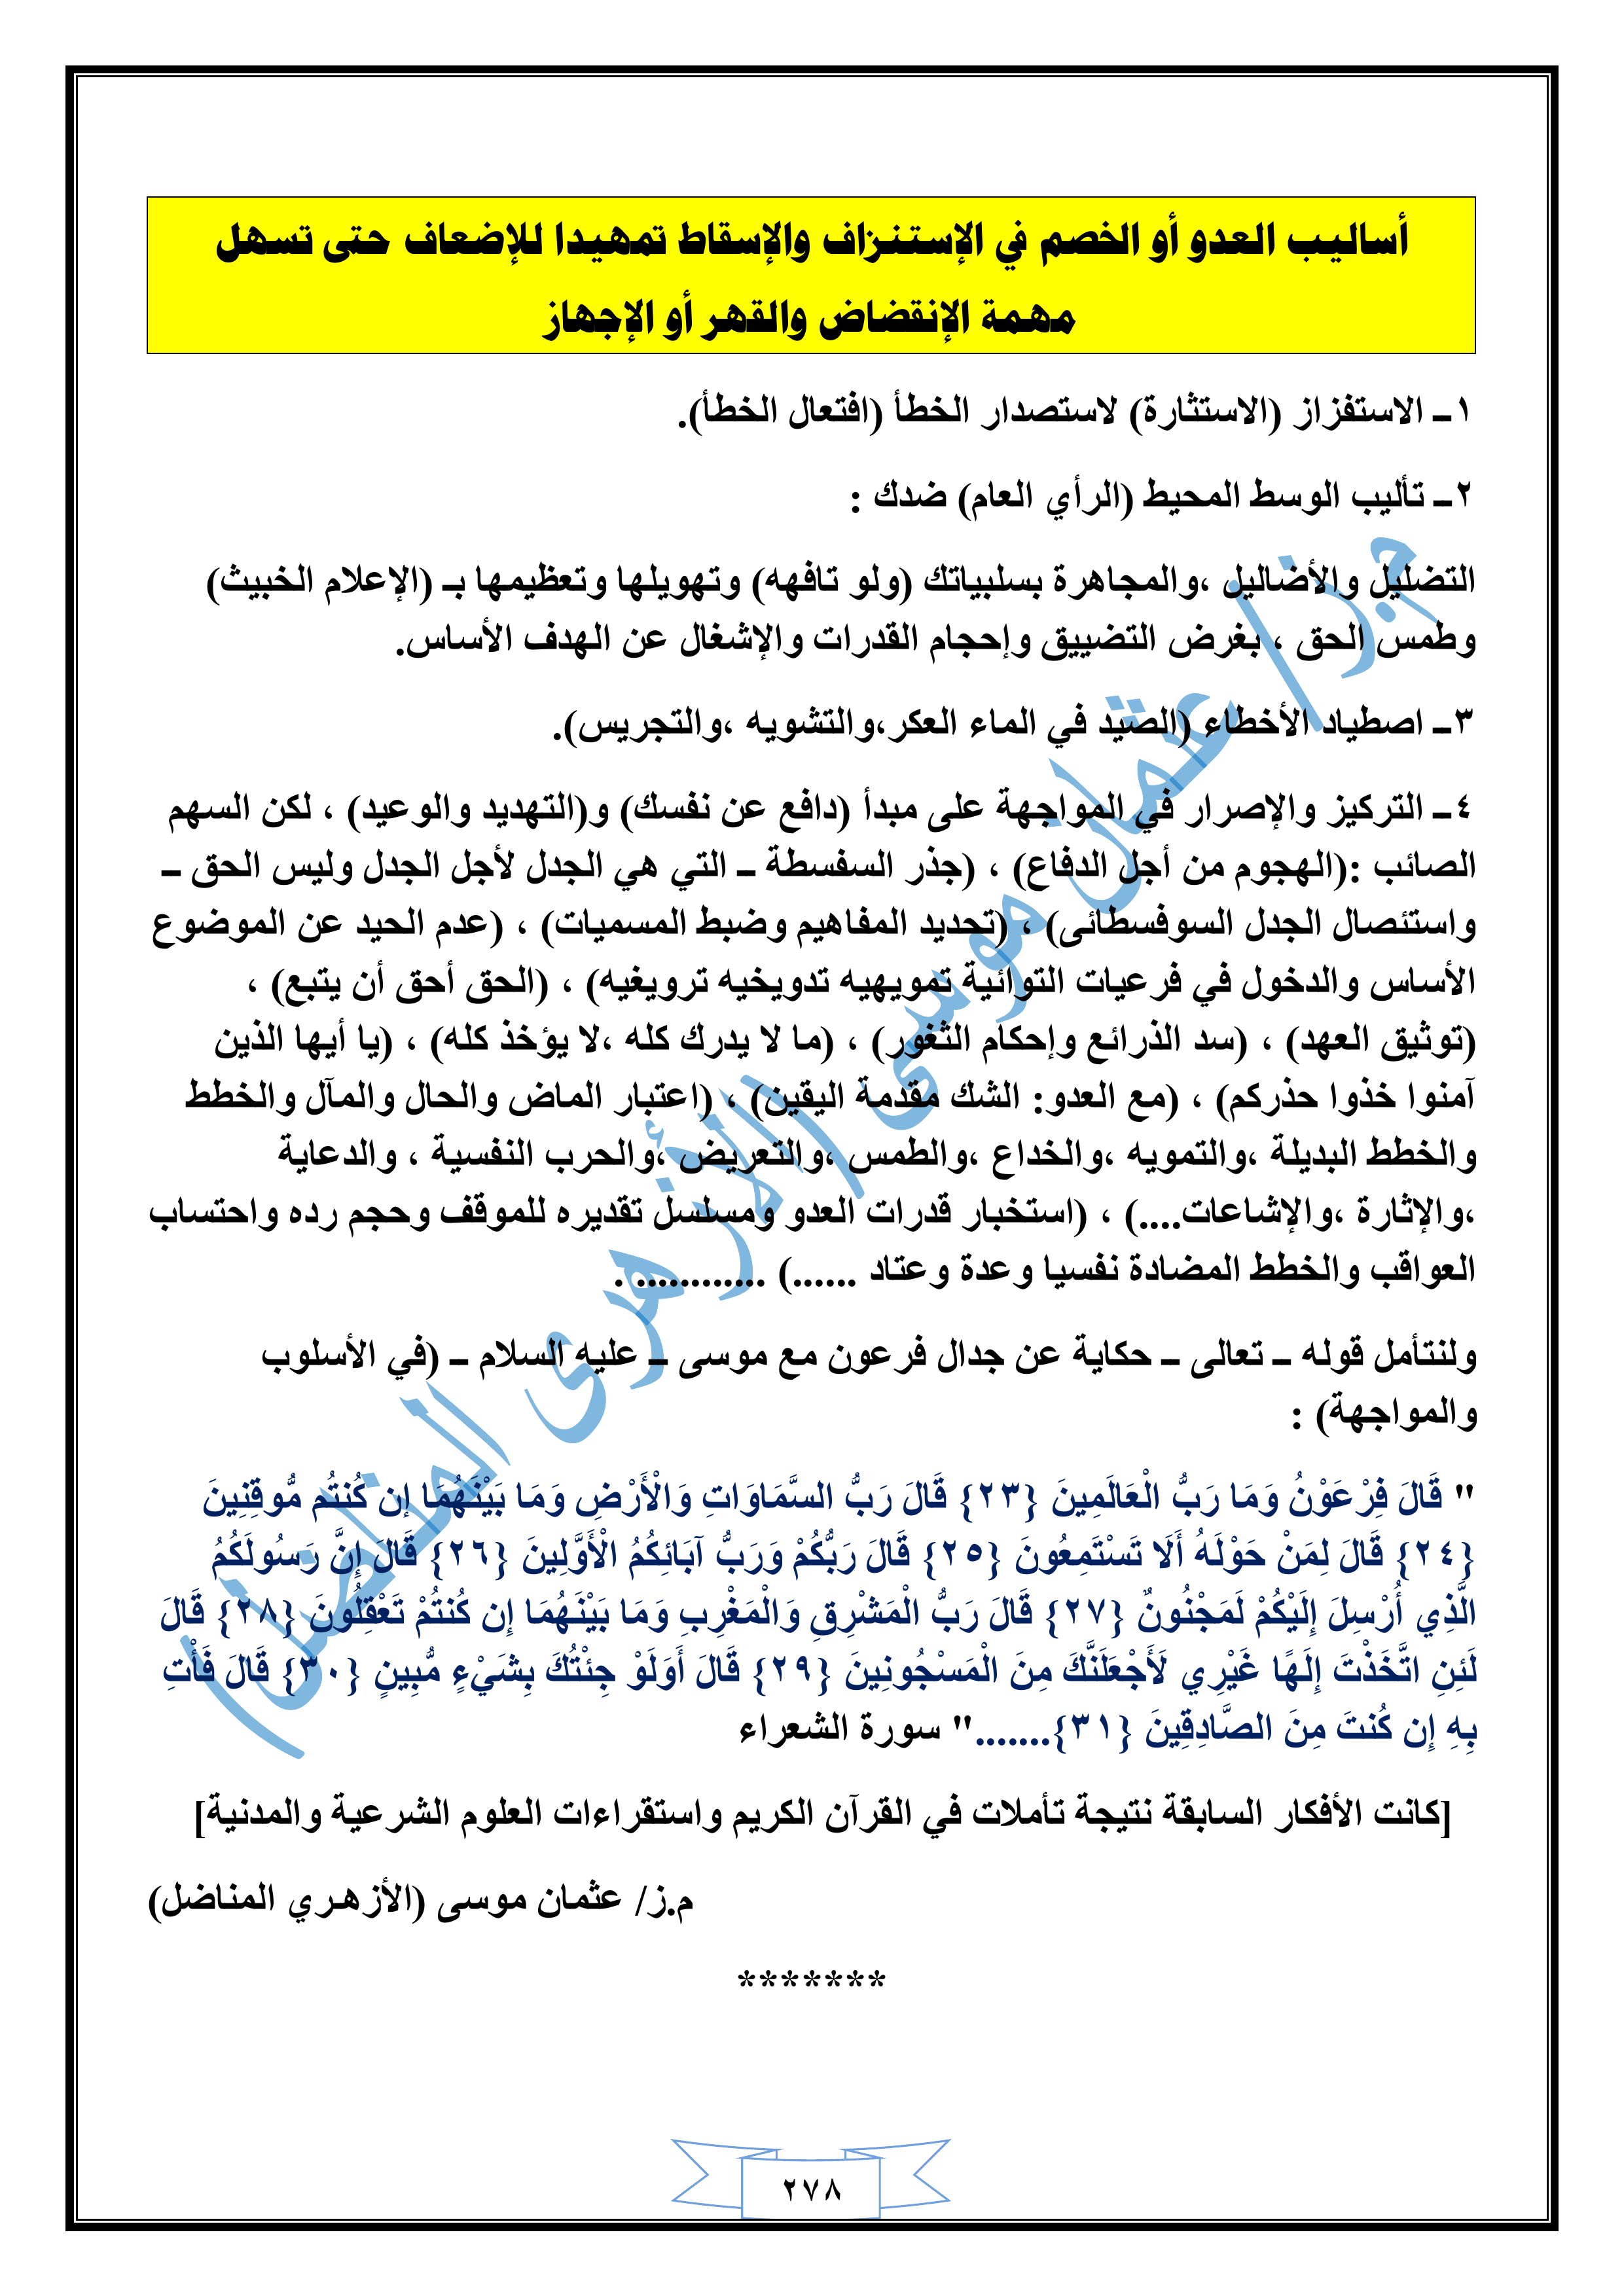 أساليب العدو أو الخصم في الإستنزاف والإسقاط تمهيدا للإضعاف حتى تسهل
مهمة الإنقضاض والقهر أو الإجهاز
١ـ الاستفزاز (الاستثارة) لاستصدار الخطأ (افتعال الخطأ).
٢ـ تأليب الوسط المحيط (الرأي العام) ضدك :
التضليل والأضاليل ،والمجاهرة بسلبياتك (ولو تافهه) وتهويلها وتعظيمها بـ (الإعلام الخبيث)
وطمس الحق ، بغرض التضييق وإحجام القدرات والإشغال عن الهدف الأساس.
٣ـ اصطياد الأخطاء (الصيد في الماء العكر،والتشويه ،والتجريس).
٤ـ التركيز والإصرار في المواجهة على مبدأ (دافع عن نفسك) و(التهديد والوعيد) ، لكن السهم
الصائب :(الهجوم من أجل الدفاع) ، (جذر السفسطة ـ التي هي الجدل لأجل الجدل وليس الحق ـ
واستئصال الجدل السوفسطائى) ، (تحديد المفاهيم وضبط المسميات) ، (عدم الحيد عن الموضوع
الأساس والدخول في فرعيات التوائية تمويهيه تدويخيه ترويغيه) ، (الحق أحق أن يتبع) ،
(توثيق العهد) ، (سد الذرائع وإحكام الثغور) ، (ما لا يدرك كله ،لا يؤخذ كله) ، (يا أيها الذين
آمنوا خذوا حذركم) ، (مع العدو: الشك مقدمة اليقين) ، (اعتبار الماض والحال والمآل والخطط
والخطط البديلة ،والتمويه ،والخداع ،والطمس ،والتعريض ،والحرب النفسية ، والدعاية
،والإثارة ،والإشاعات....) ، (استخبار قدرات العدو ومسلسل تقديره للموقف وحجم رده واحتساب
العواقب والخطط المضادة نفسيا وعدة وعتاد ......) ............ .
ولنتأمل قوله ـ تعالى ـ حكاية عن جدال فرعون مع موسى ـ عليه السلام ـ (في الأسلوب
والمواجهة) :
" قَالَ فِرْعَوْنُ وَمَا رَبُّ الْعَالَمِينَ {٢٣} قَالَ رَبُّ السَّمَاوَاتِ وَالْأَرْضِ وَمَا بَيْنَهُمَا إن كُنتُم مُّوقِنِينَ
{٢٤} قَالَ لِمَنْ حَوْلَهُ أَلَا تَسْتَمِعُونَ {٢٥} قَالَ رَبُّكُمْ وَرَبُّ آبَائِكُمُ الْأَوَّلِينَ {٢٦} قَالَ إِنَّ رَسُولَكُمُ
الَّذِي أُرْسِلَ إِلَيْكُمْ لَمَجْنُونٌ {٢٧} قَالَ رَبُّ الْمَشْرِقِ وَالْمَغْرِبِ وَمَا بَيْنَهُمَا إِن كُنتُمْ تَعْقِلُونَ {٢٨} قَالَ
لَئِنِ اتَّخَذْتَ إِلَهًا غَيْرِي لَأَجْعَلَنَّكَ مِنَ الْمَسْجُونِينَ {٢٩} قَالَ أَوَلَوْ جِئْتُكَ بِشَيْءٍ مُّبِينٍ {٣٠} قَالَ فَأْتِ
بِهِ إِن كُنتَ مِنَ الصَّادِقِينَ {٣١}......." سورة الشعراء
[كانت الأفكار السابقة نتيجة تأملات في القرآن الكريم واستقراءات العلوم الشرعية والمدنية]
م.ز/ عثمان موسى (الأزهري المناضل)
*******
٢٧٨
م.ز/ عثمان موسى (الأزهرى المناضل)